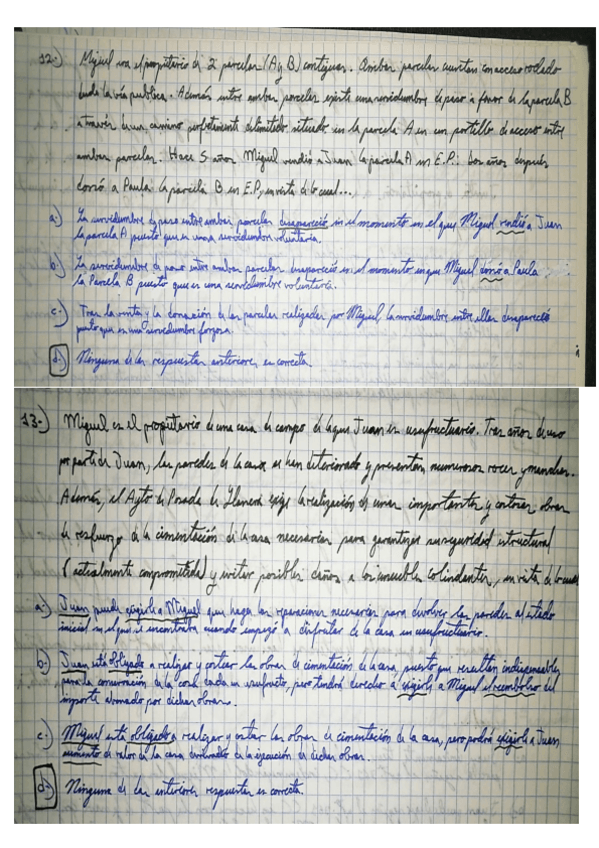 12-) Miguel era el propietario de 2 parcelas (A y B) contiguas. Ambas parcelas cuentan con acceso rodado
desde la vía publica. Además entre ambas parcelas existe una servidumbre de paso a favor de la parcela B
a través de un camino perfectamente delimitado situado en la parcela A en un portillo de acceso entre
ambas parcelas. Hace 5 años Miguel vendió a Juan la parcela A en E.P.: Dos años después
donó a Paula la parcela B en E.P, en vista de lo cual...
a-) La servidumbre de paso entre ambas parcelas desapareció en el momento en el que Miguel vendió a Juan
la parcela A puesto que es una servidumbre voluntaria.
b-) La servidumbre de paso entre ambas parcelas desapareció en el momento en que Miguel donó a Paula
la Parcela B puesto que es una servidumbre voluntaria.
c-) Tras la venta y la donación de las parcelas realizadas por Miguel, la servidumbre entre ellas desapareció
puesto que es una servidumbre forzosa.
d-) Ninguna de las respuestas anteriores es correcta.
13-) Miguel es el propietario de una casa de campo de la que Juan es usufructuario. Tras años de uso
por parte de Juan, las paredes de la casa se han deteriorado y presentan numerosos roces y manchas.
Además, el Ayto de Posada de Llanera exige la realización de unas importantes y costosas obras
de refuerzo de la cimentación de la casa necesarias para garantizar su seguridad estructural
(actualmente comprometida) y evitar posibles daños a los inmuebles colindantes, en vista de lo cual
a-) Juan puede exigirle a Miguel que haga las reparaciones necesarias para devolver las paredes al estado
inicial en el que se encontraba cuando empezó a disfrutar de la casa en usufructuario.
b-) Juan está obligado a realizar y costear las obras de cimentación de la casa, puesto que resultan indispensables
para la conservación de la cosa dada en usufructo, pero tendrá derecho a exigirle a Miguel el reembolso del
importe abonado por dichas obras.
c-) Miguel está obligado a realizar y costear las obras de cimentación de la casa, pero podrá exigirle a Juan
aumento de valor de la casa derivado de la ejecución de dichas obras.
d-) Ninguna de las anteriores respuestas es correcta.